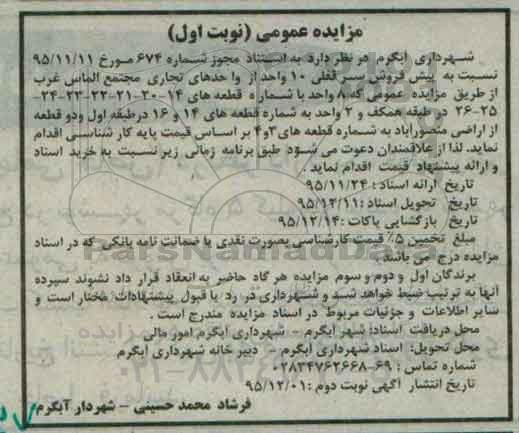 مزایده عمومی (نوبت اول)
شهرداری آبگرم در نظر دارد به استناد مجوز شماره ۶۷۴ مورخ ۹۵/۱۱/۱۱
نسبت به پیش فروش سر قفلی ۱۰ واحد از واحدهای تجاری مجتمع الماس غرب
از طریق مزایده عمومی که ۸ واحد با شماره قطعه های ۱۴-۲۰-۲۱-۲۲-۲۳-۲۴-
۲۵-۲۶ در طبقه همکف و ۲ واحد به شماره قطعه های ۱۴ و ۱۶ درطبقه اول ودو قطعه
از اراضی منصورآباد به شماره قطعه های ۳و۴ بر اساس قیمت پایه کار شناسی اقدام
نماید. لذا از علاقمندان دعوت می شود طبق برنامه زمانی زیر نسبت به خرید اسناد
و ارائه پیشنهاد قیمت اقدام نماید .
تاریخ ارائه اسناد : ۹۵/۱۱/۲۴
تاریخ تحویل اسناد : ۹۵/۱۲/۱۱
تاریخ بازگشایی پاکات : ۹۵/۱۲/۱۴
مبلغ تخمین ۵٪ قیمت کارشناسی بصورت نقدی یا ضمانت نامه بانکی که در اسناد
مزایده درج می باشد .
برندگان اول و دوم و سوم مزایده هر گاه حاضر به انعقاد قرار داد نشوند سپرده
آنها به ترتیب ضبط خواهد شد و شهرداری در رد یا قبول پیشنهادات مختار است و
سایر اطلاعات و جزئیات مربوط در اسناد مزایده مندرج است .
محل دریافت اسناد: شهر آبگرم - شهرداری آبگرم امور مالی
محل تحویل: اسناد شهرداری آبگرم - دبیر خانه شهرداری آبگرم
شماره تماس : ۶۹-۰۲۸۳۴۷۶۲۶۶۸
تاریخ انتشار آگهی نوبت دوم : ۹۵/۱۲/۰۱
فرشاد محمد حسینی - شهردار آبگرم
ParsNamadData